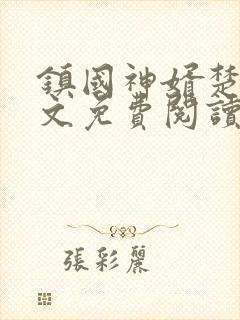 鎮國神婿楚
文免費閱讀
張彩麗